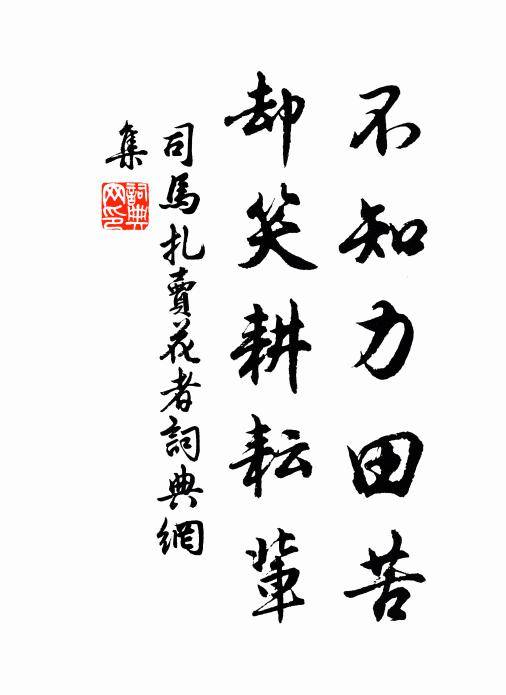 不知力田苦
却笑耕耘輩
司馬扎賣花者詞典網
集
詞典网印